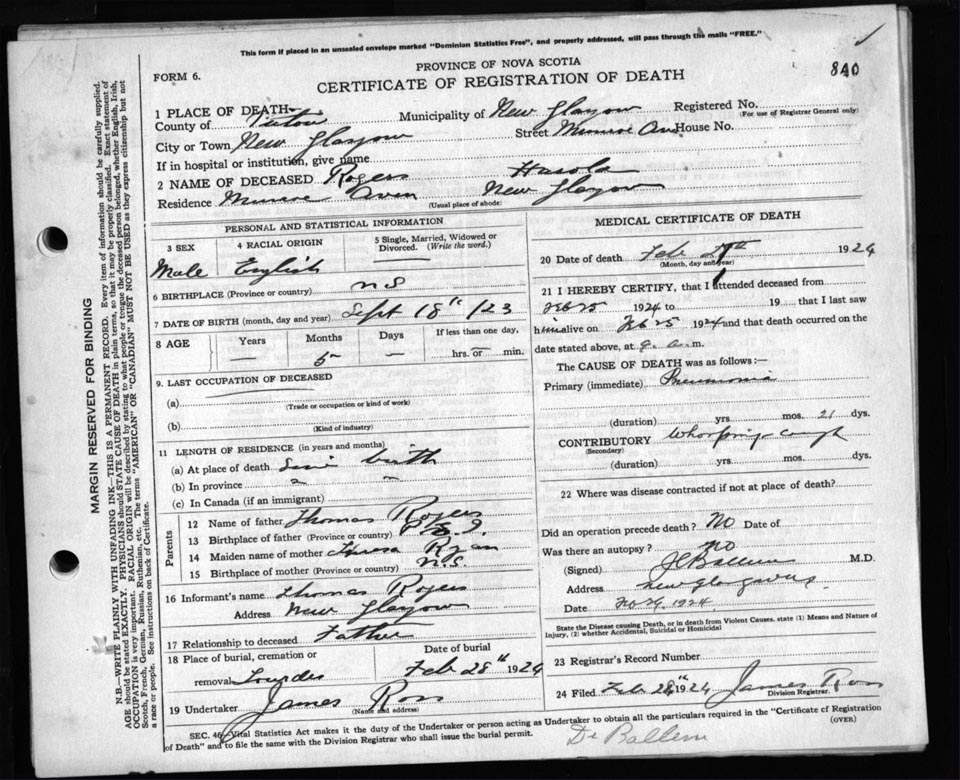 This form if placed in an unsealed envelope marked "Dominion Statistics Free", and properly addressed, will pass through the mails "FREE."
PROVINCE OF NOVA SCOTIA
FORM 6.
CERTIFICATE OF REGISTRATION OF DEATH
840
1 PLACE OF DEATH—
County of Pictou Municipality of New Glasgow Registered No.
(For use of Registrar General only)
City or Town New Glasgow Street Munroe Av House No.
If in hospital or institution, give name
2 NAME OF DECEASED Rogers Harold
Residence Munroe Aven New Glasgow
(Usual place of abode)
PERSONAL AND STATISTICAL INFORMATION
3 SEX 4 RACIAL ORIGIN 5 Single, Married, Widowed or Divorced. (Write the word.)
Male English
6 BIRTHPLACE (Province or country) N S
7 DATE OF BIRTH (month, day and year) Sept 18th /23
8 AGE Years Months Days If less than one day,
— 5 — hrs. or min.
9. LAST OCCUPATION OF DECEASED
(a)
(Trade or occupation or kind of work)
(b)
(Kind of industry)
11 LENGTH OF RESIDENCE (in years and months)
(a) At place of death Since birth
(b) In province " "
(c) In Canada (if an immigrant)
Parents
12 Name of father Thomas Rogers
13 Birthplace of father (Province or country) P E I.
14 Maiden name of mother Theresa Ryan
15 Birthplace of mother (Province or country) N.S.
16 Informant's name Thomas Rogers
Address New Glasgow
17 Relationship to deceased Father
18 Place of burial, cremation or Date of burial
removal Lourdes Feb 28th 1924
19 Undertaker James Ross
(Name and address)
MEDICAL CERTIFICATE OF DEATH
20 Date of death Feb 1924
(Month, day and year)
21 I HEREBY CERTIFY, that I attended deceased from
Feb 25 1924 to 19 that I last saw
him alive on Feb 25 1924 and that death occurred on the
date stated above, at 9 a.m.
The CAUSE OF DEATH was as follows:—
Primary (immediate) Pneumonia
(duration) yrs. mos. 21 dys.
CONTRIBUTORY Whooping cough
(Secondary)
(duration) yrs. mos. dys.
22 Where was disease contracted if not at place of death?
Did an operation precede death? No Date of
Was there an autopsy? no
(Signed) J C Ballem M.D.
Address New Glasgow NS
Date Feb 26, 1924.
State the Disease causing Death, or in death from Violent Causes, state (1) Means and Nature of
Injury, (2) whether Accidental, Suicidal or Homicidal
23 Registrar's Record Number
24 Filed Feb 28th 1924 James Ross
Division Registrar.
SEC. 46, Vital Statistics Act makes it the duty of the Undertaker or person acting as Undertaker to obtain all the particulars required in the "Certificate of Registration
of Death" and to file the same with the Division Registrar who shall issue the burial permit.
(OVER)
Dr Ballem
MARGIN RESERVED FOR BINDING
N.B.—WRITE PLAINLY WITH UNFADING INK—THIS IS A PERMANENT RECORD. Every item of information should be carefully supplied.
AGE should be stated EXACTLY. PHYSICIANS should STATE CAUSE OF DEATH in plain terms, so that it may be properly classified. Exact statement of
OCCUPATION is very important. RACIAL ORIGIN will be described by stating to what people or tongue the deceased person belonged, whether English, Irish,
Scotch, French, German, Russian, Ruthenian, etc. The terms "AMERICAN" OR "CANADIAN" MUST NOT BE USED as they express citizenship but not
a race or people. See instructions on back of Certificate.